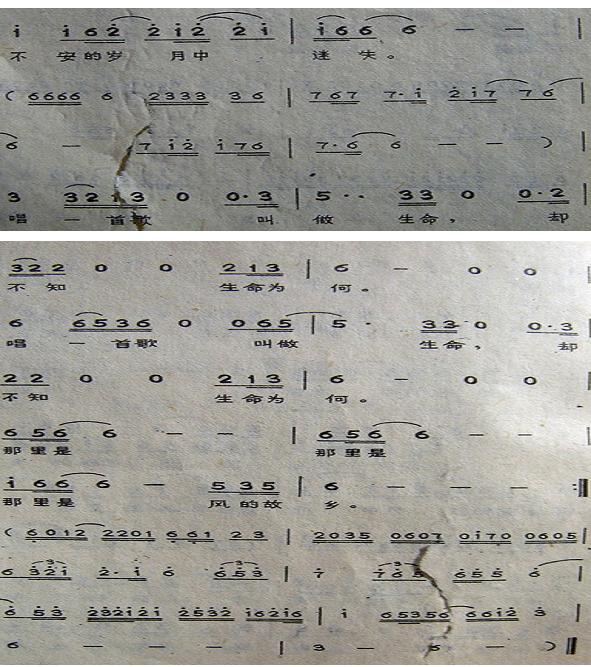 i  i 6 2  2 i 2  2 i | i 6 6  6  —  — |
不 安的岁 月中 迷 失。
( 6666 6 2333 36 | 767 7· i 2 i 7 76 |
6 — 7 i 2 i 76 | 7·6 6 — — )
3 32 i 3 0 0·3 | 5 ·· 33 0 0·2
唱 一 首歌 叫 做 生命, 却
322 0 0 213 | 6 — 0 0
不 知 生命为 何。
6 6536 0 065 | 5 · 33 0 0·3
唱 一 首歌 叫做 生命, 却
22 0 0 213 | 6 — 0 0
不知 生命为 何。
656 6 — — | 656 6 — —
那里是 那里是
i 66 6 — 535 | 6 — — — :‖
那里是 风的故 乡。
( 6012 2201 661 23 | 2035 0607 0i70 0605 |
6 32i 2· i 6 653 | 7 765 655 6
6 53 232i2i 2532 i62i6 | i 65356 66i2 3
6 — — — | 3 — 6 — ) ‖